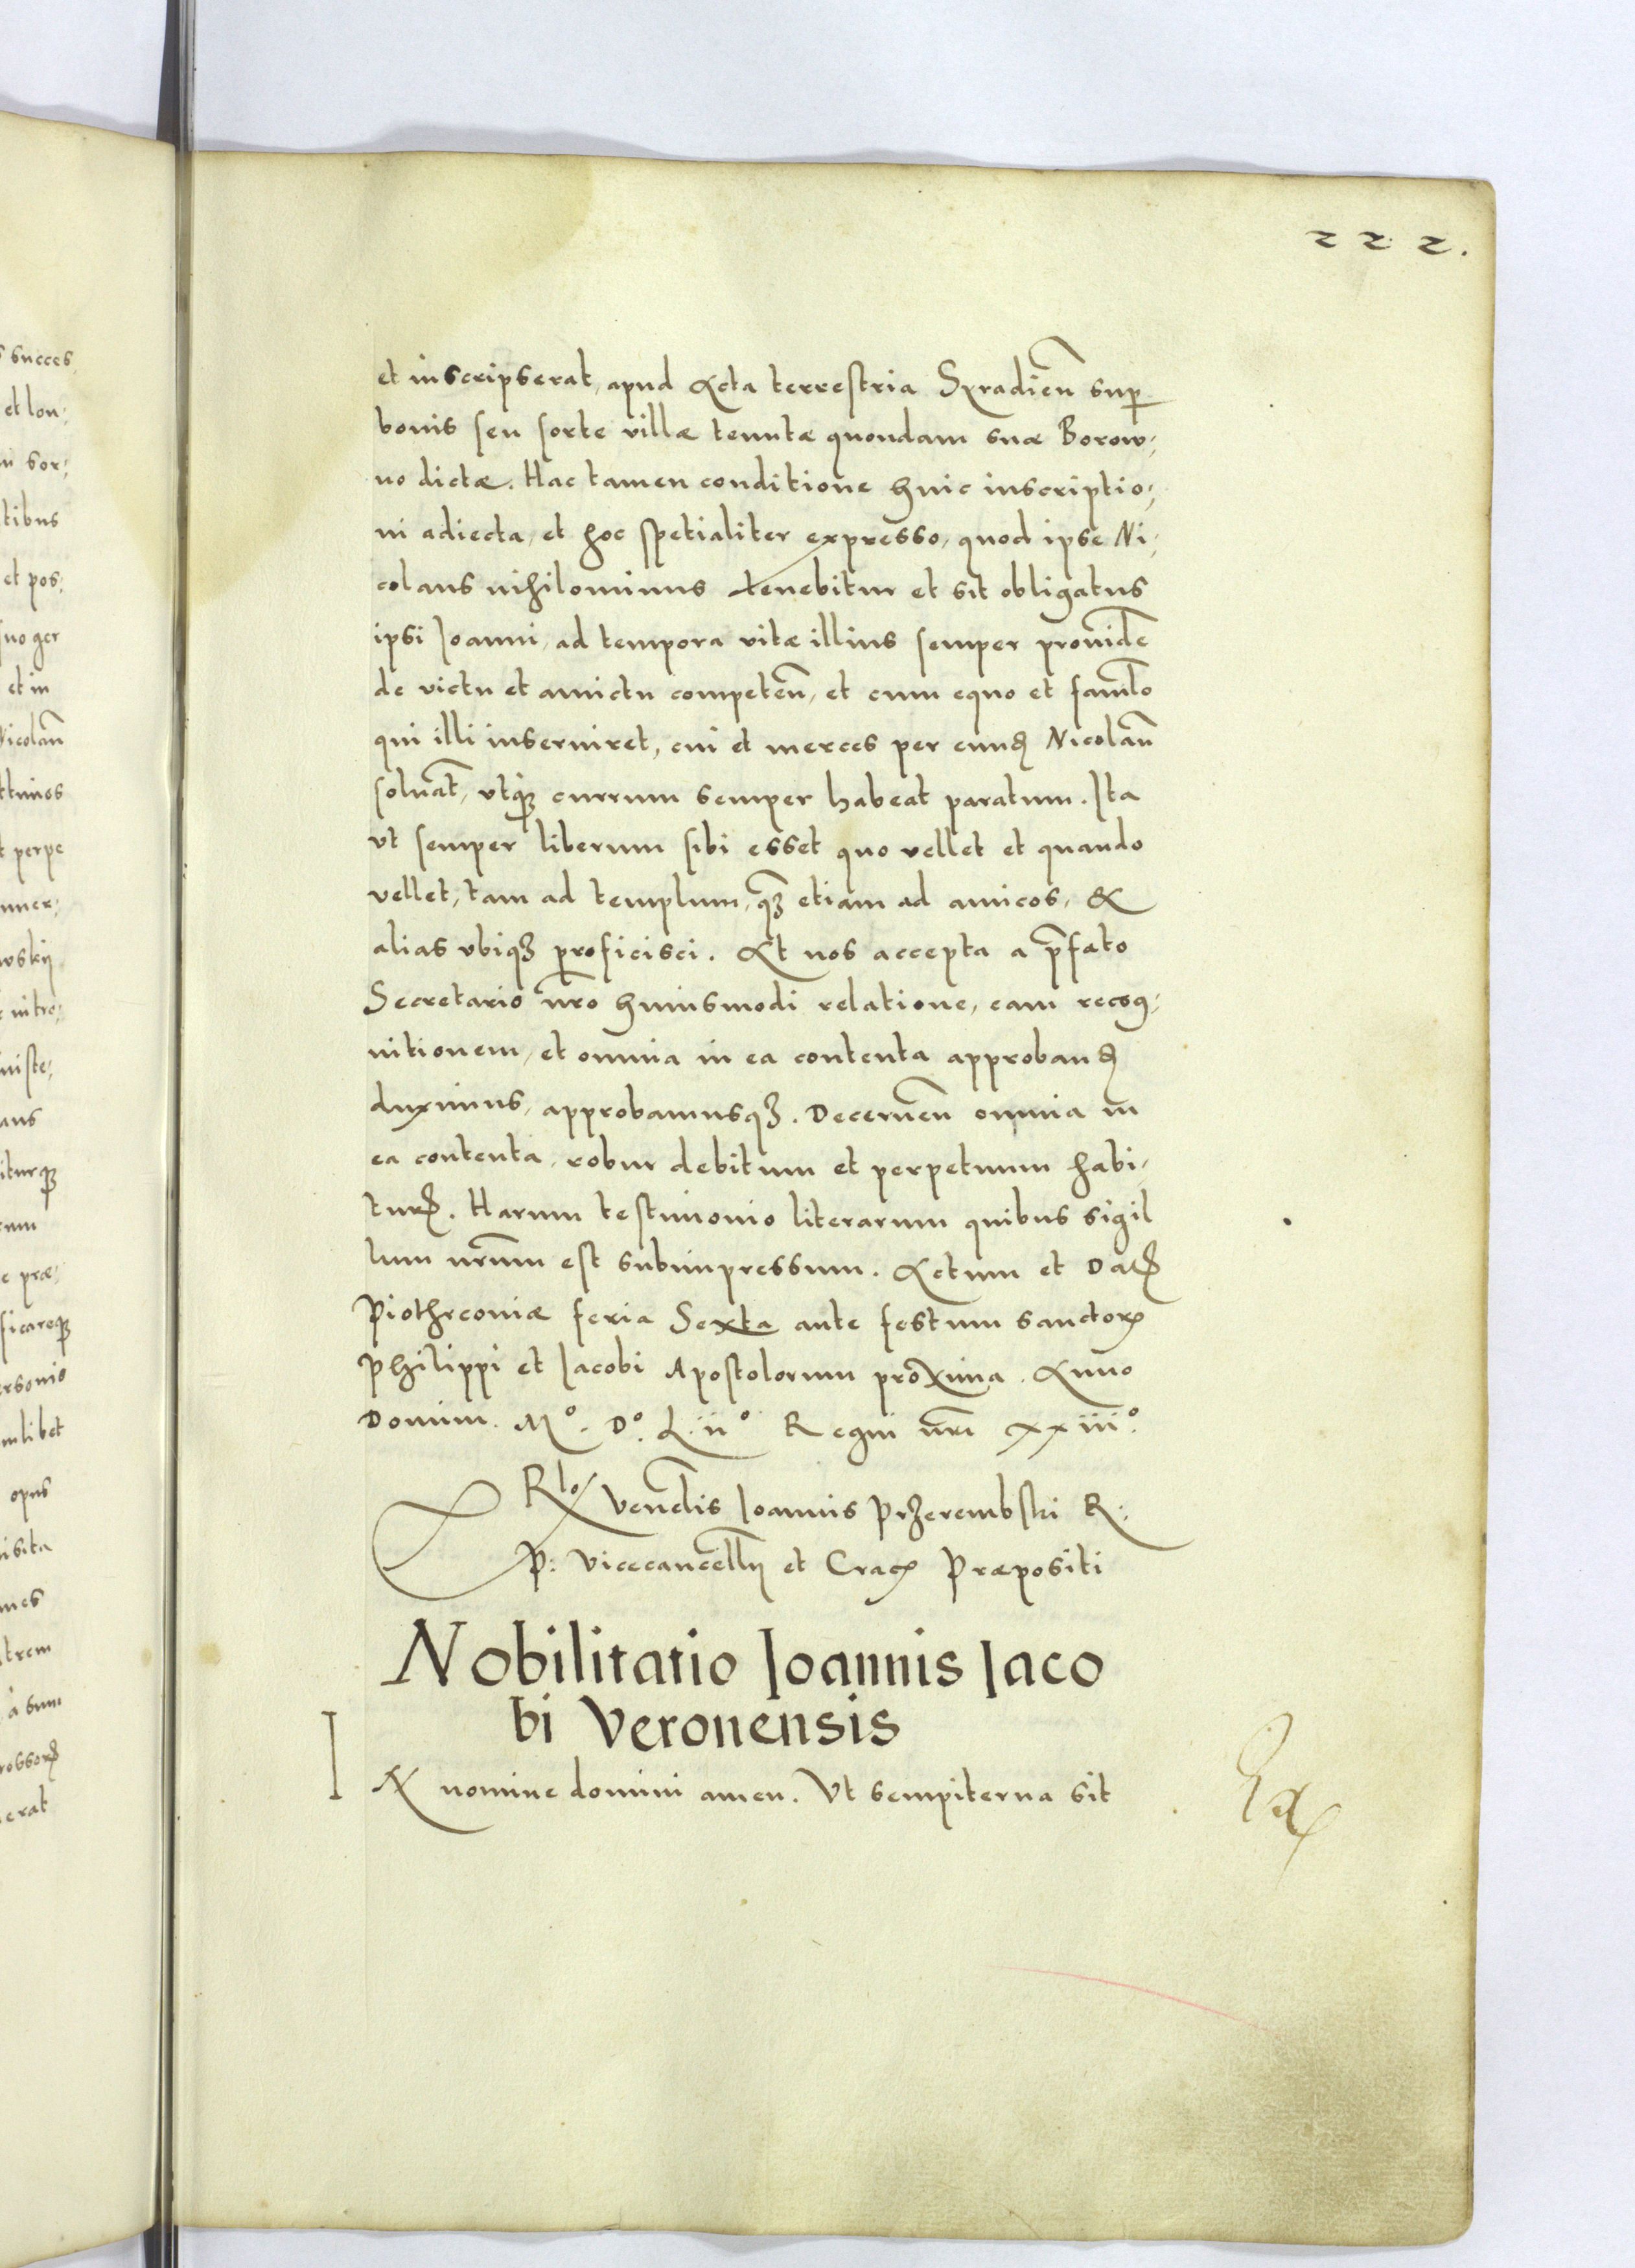 222.
et inscripserat, apud Acta terrestria Syradien̄ sup̲
bonis seu sorte villæ tenutæ quondam suæ Borow,
no dictæ. Hac tamen conditione huic inscriptio,
ni adiecta, et hoc spetialiter expresso, quod ipse Ni,
colaus nihilominus tenebitur et sit obligatus
ipsi Ioanni, ad tempora vitæ illius semper prouid̄e
de victu et amictu competen̄, et cum equo et faml̄o
qui illi inseruiret, cui et merces per eund̨ Nicolaū
soluat̄, vtq̨ꝫ currum semper habeat paratum. Ita
vt semper liberum sibi esset quo vellet et quando
vellet, tam ad templum, qꝫ̄ etiam ad amicos, &
alias vbiqꝫ proficisci. Et nos accepta a p̄fato
Secretario nr̄o huiusmodi relatione, eam recog,
nitionem, et omnia in ea contenta approband̨
duximus, approbamusqꝫ. Decernen̄ omnia in
ea contenta, robur debitum et perpetuum habi,
turꝫ. Harum testimonio literarum quibus sigil
lum nr̄um est subimpressum. Actum et Datꝫ
Piothrcouiæ feria Sexta ante festum sanctorꝫ
Philippi et Iacobi Apostolorum proxima. Anno
Domini. Mº. Dº. L. iiº Regni nr̄i xxiiiº.
Rlo/ Ven̄dis Ioannis Przerembski R:
P: Vicecancell̄ij et Cracꝫ Præpositi
Nobilitatio Ioannis Iaco
bi Veronensis
IN nomine domini amen. Vt sempiterna sit